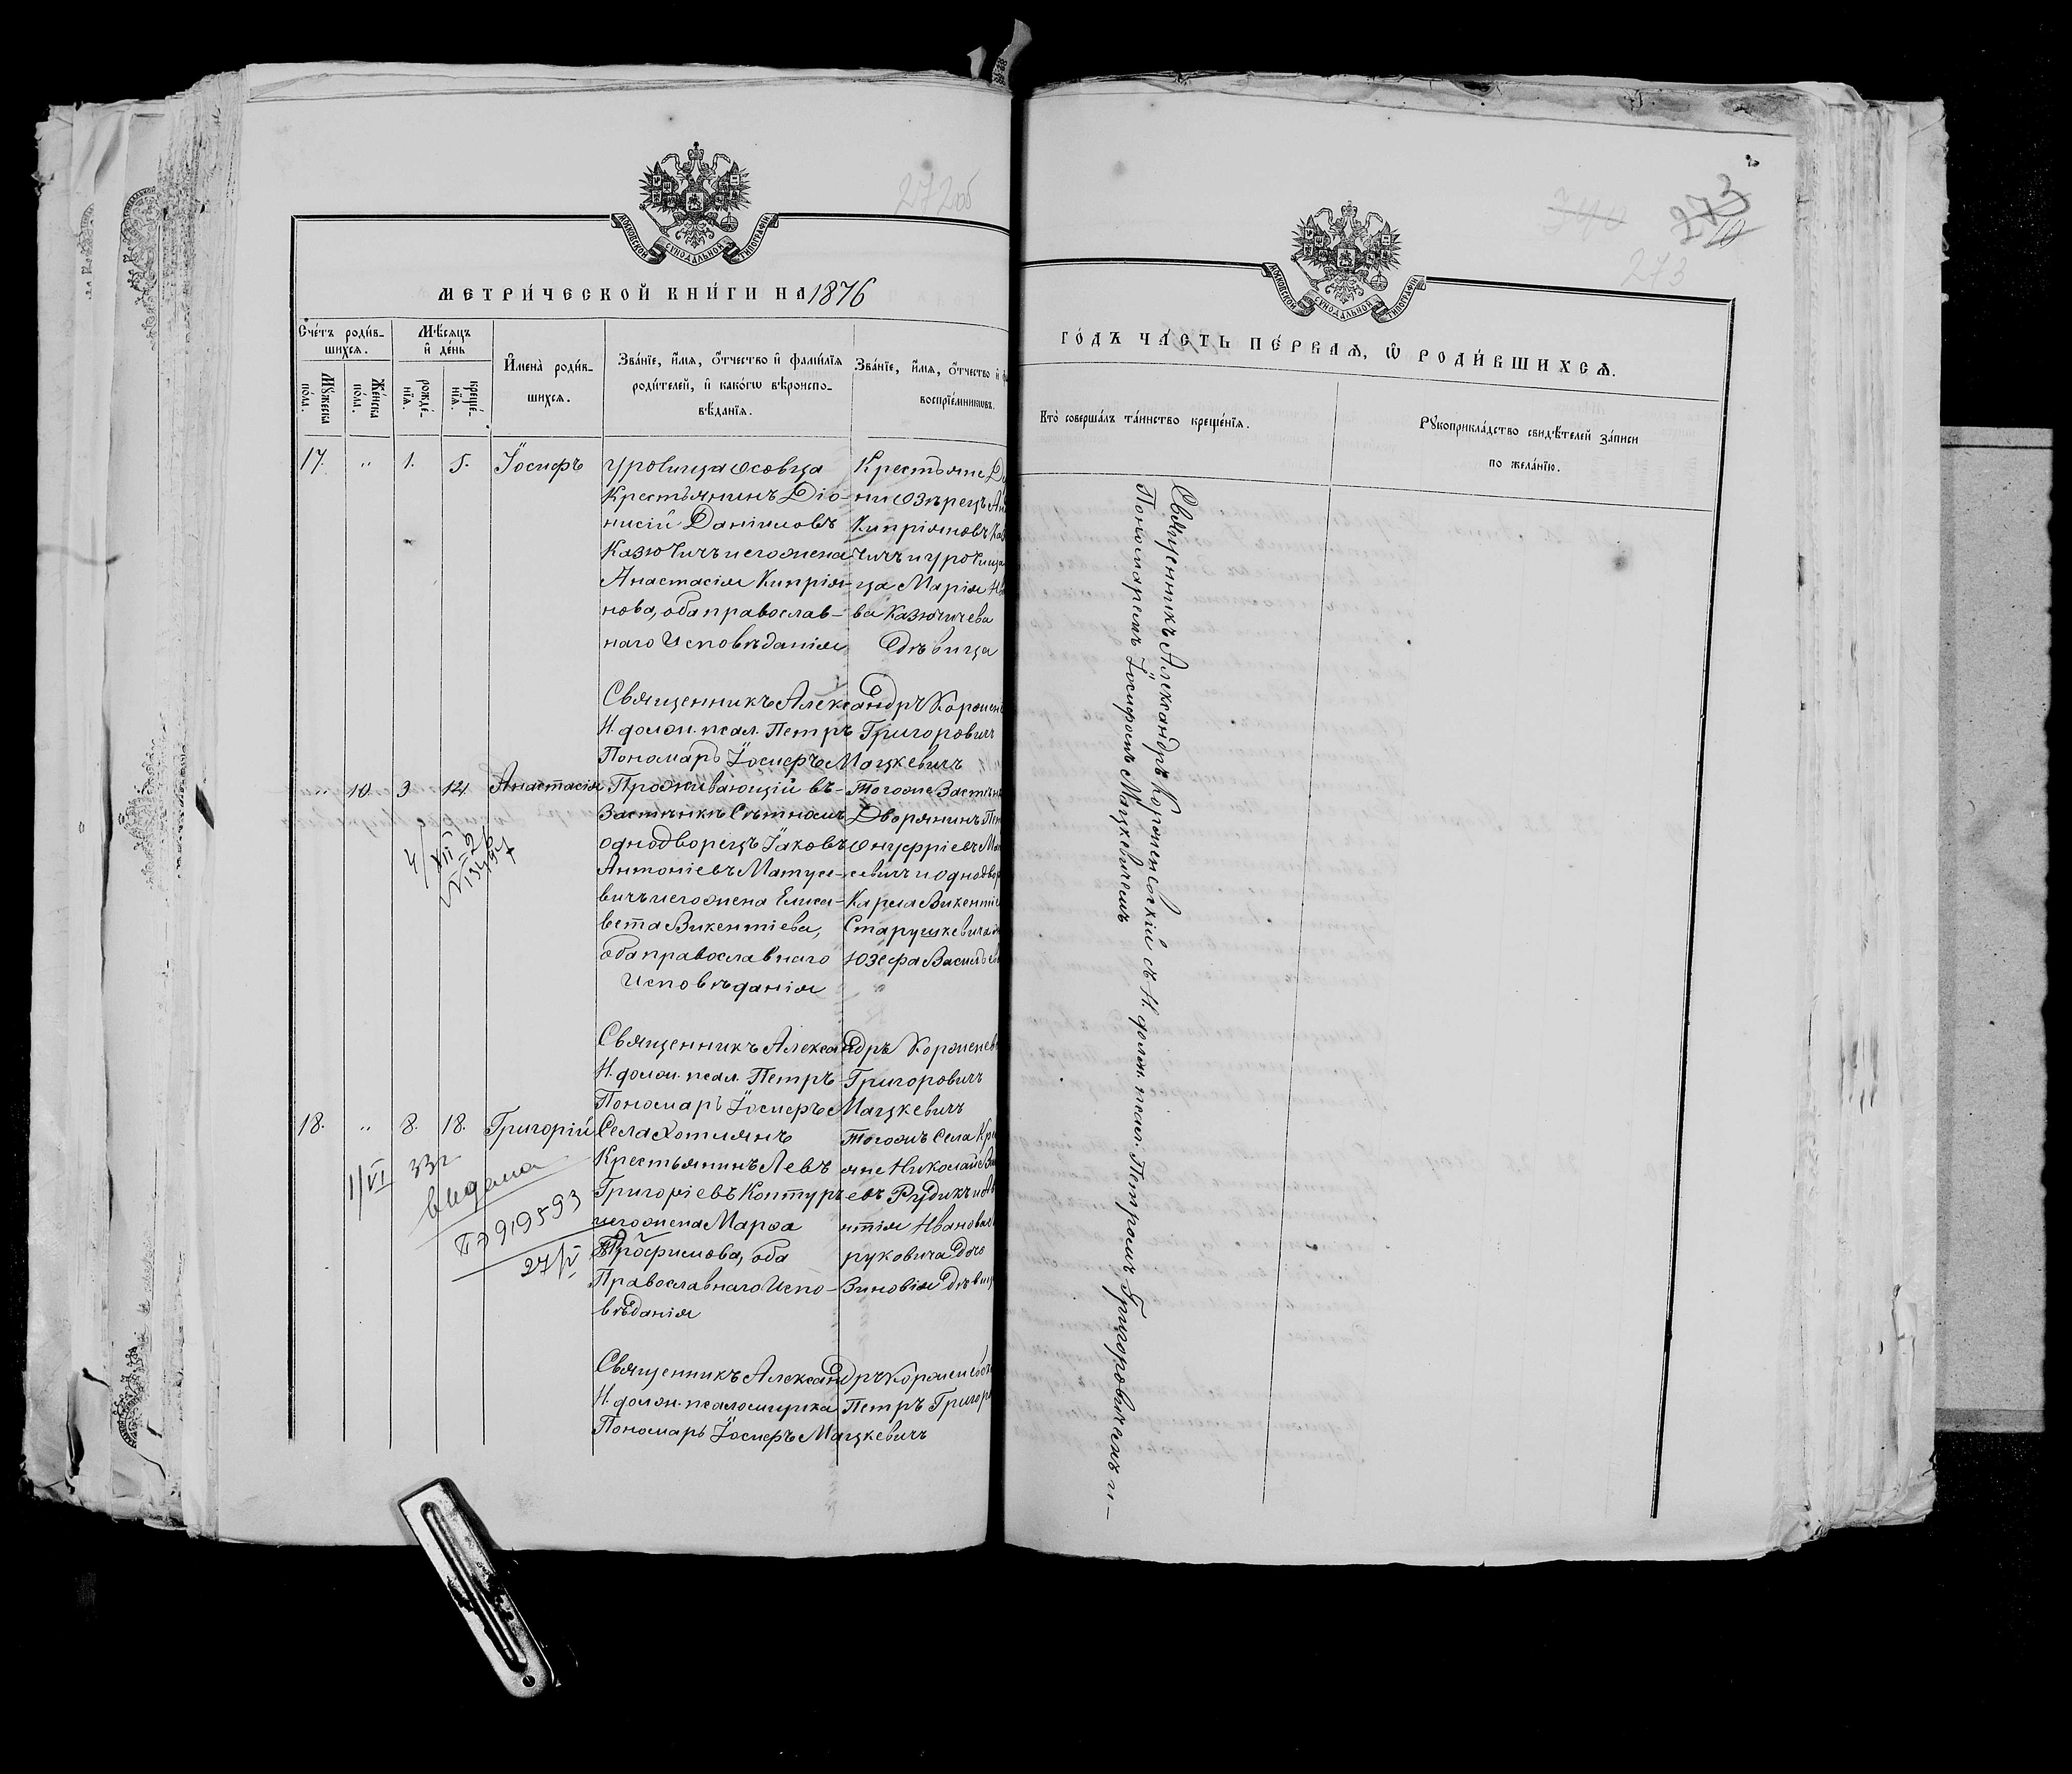 272об
МОСКОВСКОЙ СѴНОДАЛЬНОЙ ТИПОГРАФІИ
МЕТРИ́ЧЕСКОЙ КНИ́ГИ НА 1876
Сче́тъ роди́в-
шихся.
Мѣ́сяцъ
и҆ де́нь
Мꙋ́жеска
по́ла.
Же́нска
по́ла.
рожде́-
нїѧ.
креще́-
нїѧ.
И҆мена̀ роди́в-
шихся.
Зва́нїе, и҆́мѧ, ѻ҆́тчество и҆ фами́лїѧ
роди́телей, и҆ како́гѡ вѣроиспо-
вѣ́данїѧ.
Зва́нїе, и҆́мѧ, ѻ҆́тчество и҆
воспрїе́мникѡвъ.
17. " 1. 5. Іосифъ
Урочища Осовца
Крестьянинъ Діо-
нисій Даніиловъ
Казючичъ и его жена
Анастасія Кипрія-
нова, оба православ-
наго Исповѣданія
Крестьяне
ни Озерецъ
Кипріяновъ
чичъ и урочища
ца Марія
ва Казючичева
Дѣвица
Священникъ Александръ
Н. долж. псал. Петръ Григоровичъ
Пономарь Іосифъ Мацкевичъ
" 10. 3. 12. Анастасія
Проживающій въ
Застѣнкѣ Сѣтномъ
однодворецъ Іаковъ
Антоніевъ Матусе-
вичъ и его жена Елиса-
вета Викентіева,
оба православнаго
Исповѣданія
Тогоже Застѣнка
Дворянинъ
Онуфріевъ
севичъ и однодвор
Карла Викентіе
Старушкевича
Юзефа Василье
Священникъ Александръ
Н. долж. псал. Петръ Григоровичъ
Пономарь Іосифъ Мацкевичъ
18. " 8. 18. Григорій
1/VI 33г
выдана
919593
27/V
Села Хотлянъ
Крестьянинъ Левъ
Григоріевъ Контуръ
и его жена Марѳа
Трофимова, оба
Православнаго Испо-
вѣданія
Тогожъ Села
яне Николай
евъ Рудикъ и
нтія Иванова
руковича дочь
Зиновія Дѣвица
Священникъ Александръ
Н. долж. псаломщика Петръ
Пономарь Іосифъ Мацкевичъ
273
273
МОСКОВСКОЙ СѴНОДАЛЬНОЙ ТИПОГРАФІИ
ГО́ДЪ ЧА́СТЬ ПЕ́РВАѦ, Ѡ҆ РОДИ́ВШИХСѦ.
Кто̀ соверша́лъ та́инство креще́нїѧ.
Рꙋкоприкла́дство свидѣ́телей за́писи
по жела́нїю.
Священникъ Александръ Корженевскій съ И. долж. псал. Петромъ Григоровичемъ и
Пономаремъ Іосифомъ Мацкевичемъ